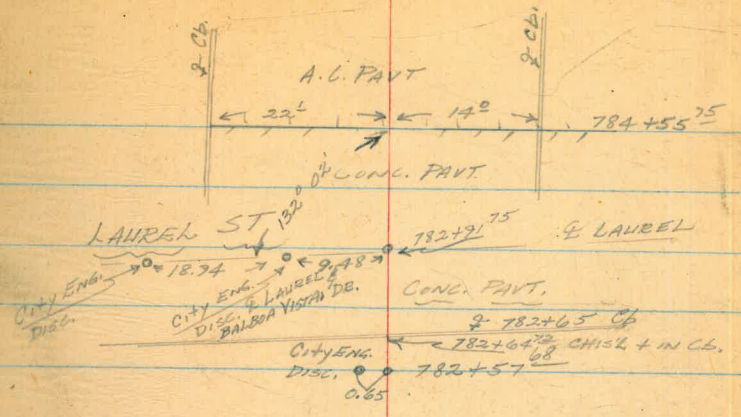 ⅊ Cb.
⅊ Cb.
A.C. PAVT
22¹
14⁰
784+55⁷⁵
CONC. PAVT.
132°
LAUREL ST
782+91⁷⁵
℄ LAUREL
18.94
9.48
CITY ENG. DISC.
CITY ENG.
DISC. ℄ LAUREL &
BALBOA VISTA DR.
CONC. PAVT.
782+65 Cb
782+64⁷² CHIS'L + IN Cb.
CITY ENG.
DISC.
782+57⁶⁸
0.65